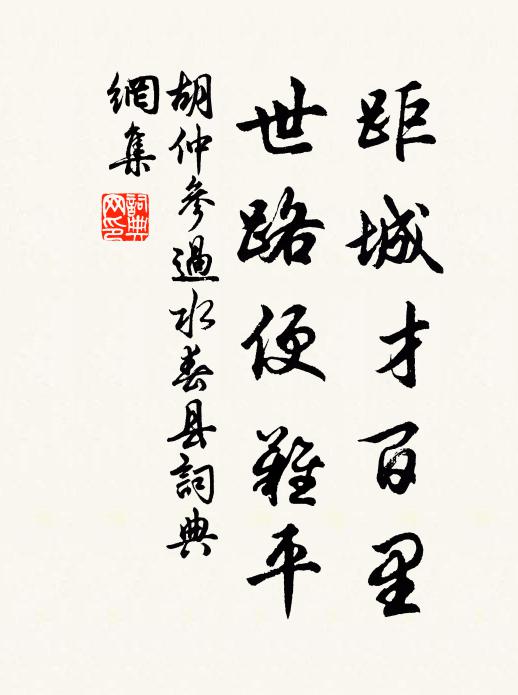 距城才百里
世路便難平
胡仲參過水春县詞典
網集
詞典
网印